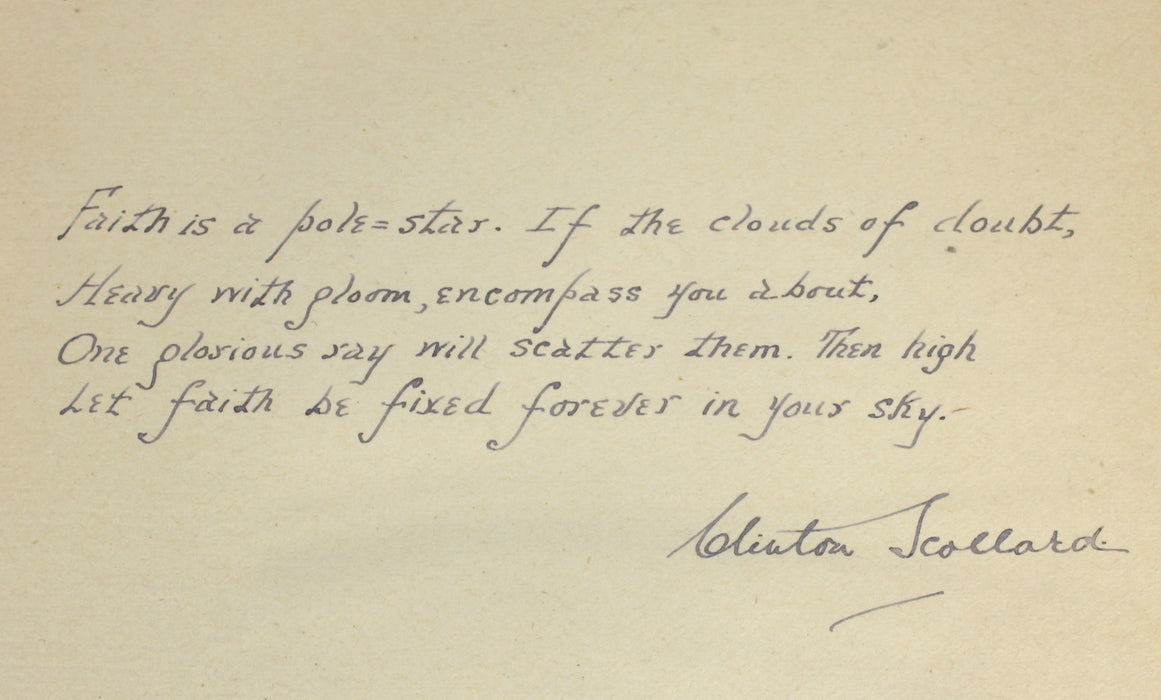 Faith is a pole=star. If the clouds of doubt,
Heavy with gloom, encompass you about,
One glorious ray will scatter them. Then high
Let faith be fixed forever in your sky.
Clinton Scollard.